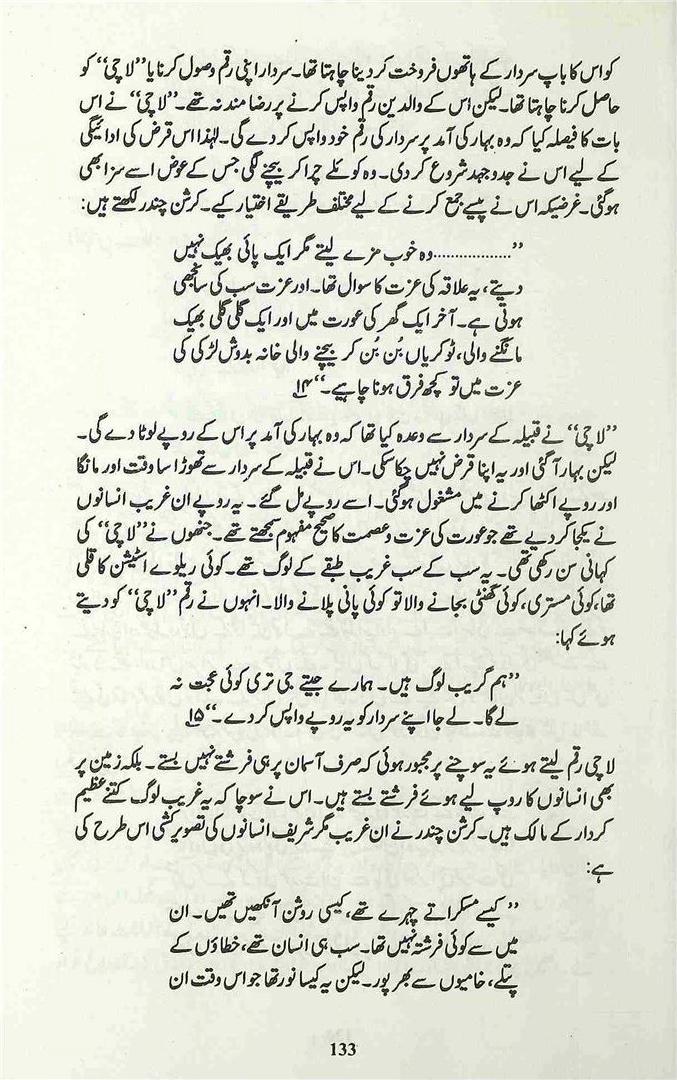 کو اس کا باپ سردار کے ہاتھوں فروخت کر دینا چاہتا تھا۔ سردار اپنی رقم وصول کرنا یا ’’لاچی‘‘ کو
حاصل کرنا چاہتا تھا۔ لیکن اس کے والدین رقم واپس کرنے پر رضا مند نہ تھے۔ ’’لاچی‘‘ نے اس
بات کا فیصلہ کیا کہ وہ بہار کی آمد پر سردار کی رقم خود واپس کر دے گی۔ لہٰذا اس قرض کی ادائیگی
کے لیے اس نے جدوجہد شروع کر دی۔ وہ کوئلے چرا کر بیچنے لگی جس کے عوض اسے سزا بھی
ہوگئی۔ غرضیکہ اس نے پیسے جمع کرنے کے لیے مختلف طریقے اختیار کیے۔ کرشن چندر لکھتے ہیں:
’’..................وہ خوب مزے لیتے مگر ایک پائی بھیک نہیں
دیتے، یہ علاقہ کی عزت کا سوال تھا۔ اور عزت سب کی سانجھی
ہوتی ہے۔ آخر ایک گھر کی عورت میں اور ایک گلی گلی بھیک
مانگنے والی، ٹوکریاں بُن بُن کر بیچنے والی خانہ بدوش لڑکی کی
عزت میں تو کچھ فرق ہونا چاہیے۔‘‘ ۱۴
’’لاچی‘‘ نے قبیلہ کے سردار سے وعدہ کیا تھا کہ وہ بہار کی آمد پر اس کے روپے لوٹا دے گی۔
لیکن بہار آگئی اور یہ اپنا قرض نہیں چکا سکی۔ اس نے قبیلہ کے سردار سے تھوڑا سا وقت اور مانگا
اور روپے اکٹھا کرنے میں مشغول ہوگئی۔ اسے روپے مل گئے۔ یہ روپے ان غریب انسانوں
نے یکجا کر دیے تھے جو عورت کی عزت و عصمت کا صحیح مفہوم سمجھتے تھے۔ جنھوں نے ’’لاچی‘‘ کی
کہانی سن رکھی تھی۔ یہ سب کے سب غریب طبقے کے لوگ تھے۔ کوئی ریلوے اسٹیشن کا قلی
تھا، کوئی مستری، کوئی گھنٹی بجانے والا تو کوئی پانی پلانے والا۔ انہوں نے رقم ’’لاچی‘‘ کو دیتے
ہوئے کہا:
’’ہم گریب لوگ ہیں۔ ہمارے جیتے جی تری کوئی عجت نہ
لے گا۔ لے جا اپنے سردار کو یہ روپے واپس کر دے۔‘‘ ۱۵
لاچی رقم لیتے ہوئے یہ سوچنے پر مجبور ہوئی کہ صرف آسمان پر ہی فرشتے نہیں بستے۔ بلکہ زمین پر
بھی انسانوں کا روپ لیے ہوئے فرشتے بستے ہیں۔ اس نے سوچا کہ یہ غریب لوگ کتنے عظیم
کردار کے مالک ہیں۔ کرشن چندر نے ان غریب مگر شریف انسانوں کی تصویر کشی اس طرح کی
ہے:
’’کیسے مسکراتے چہرے تھے، کیسی روشن آنکھیں تھیں۔ ان
میں سے کوئی فرشتہ نہیں تھا۔ سب ہی انسان تھے، خطاؤں کے
پتلے، خامیوں سے بھر پور۔ لیکن یہ کیسا نور تھا جو اس وقت ان
133